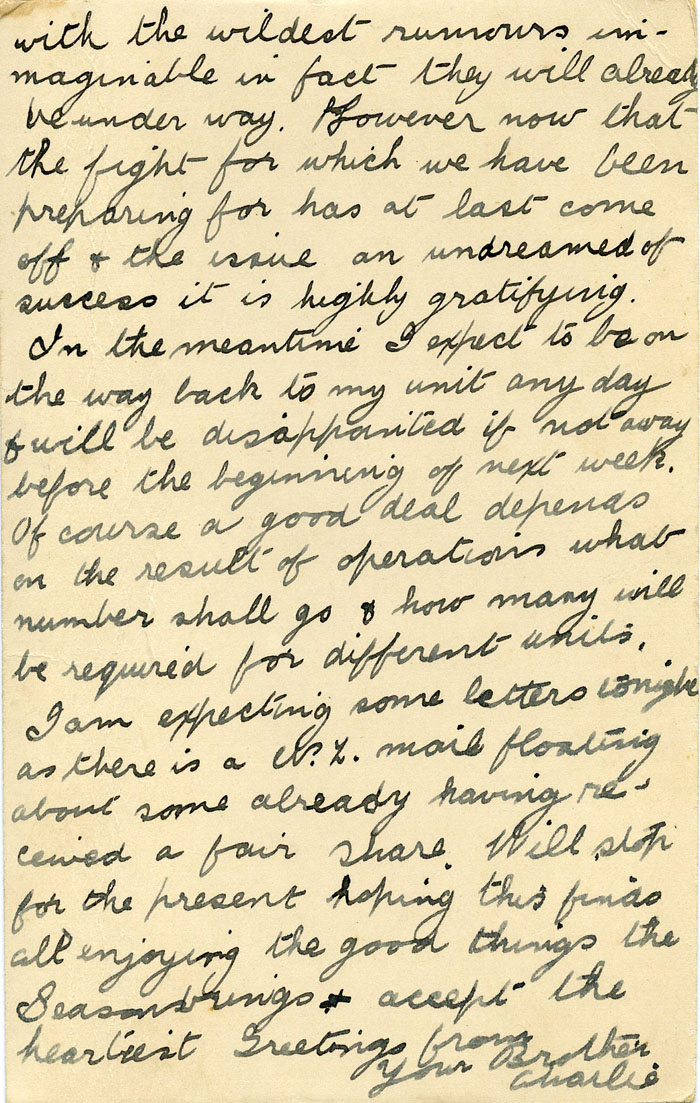 with the wildest rumours im-
maginable in fact they will already
be under way. However now that
the fight for which we have been
preparing for has at last come
off & the issue an undreamed of
success it is highly gratifying.
In the meantime I expect to be on
the way back to my unit any day
& will be disappointed if not away
before the beginning of next week.
Of course a good deal depends
on the result of operations what
number shall go & how many will
be required for different units.
I am expecting some letters tonight
as there is a N.Z. mail floating
about some already having re-
ceived a fair share. Will stop
for the present hoping this finds
all enjoying the good things the
Season brings & accept the
heartiest Greetings from
Your Brother
Charlie